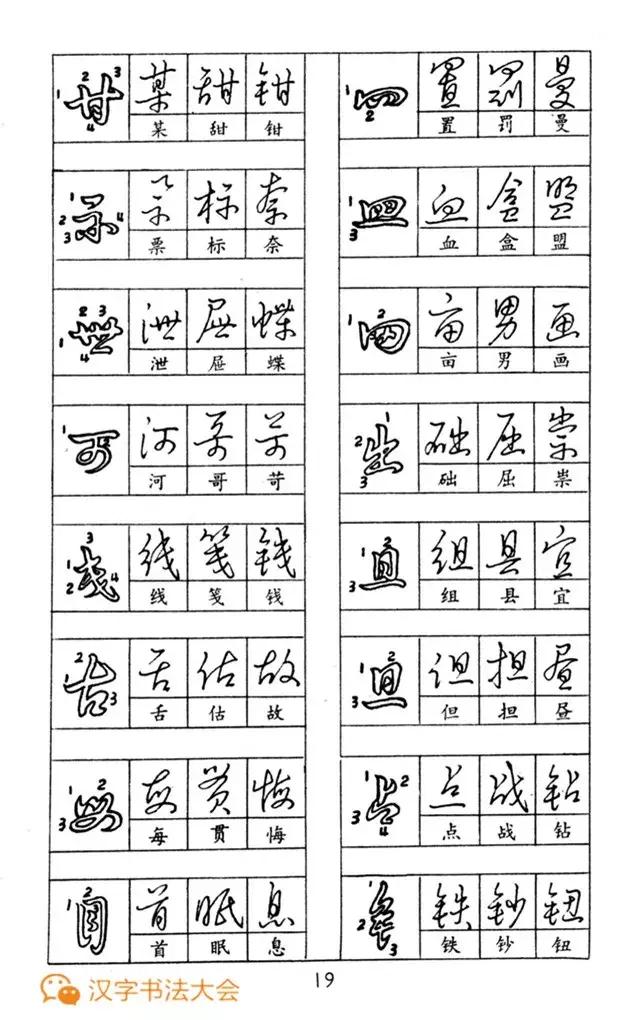 甘 某 甜 钳
某 甜 钳
示 票 标 奈
票 标 奈
世 泄 屉 蝶
泄 屉 蝶
可 河 哥 苛
河 哥 苛
戋 线 笺 钱
线 笺 钱
古 舌 估 故
舌 估 故
每 贯 悔
每 贯 悔
自 首 眠 息
首 眠 息
罒 置 罚 曼
置 罚 曼
皿 血 盒 盟
血 盒 盟
田 亩 男 画
亩 男 画
出 础 屈 祟
础 屈 祟
且 组 县 宜
组 县 宜
旦 但 担 昼
但 担 昼
占 点 战 钻
点 战 钻
钅 铁 钞 钮
铁 钞 钮
19
汉字书法大会